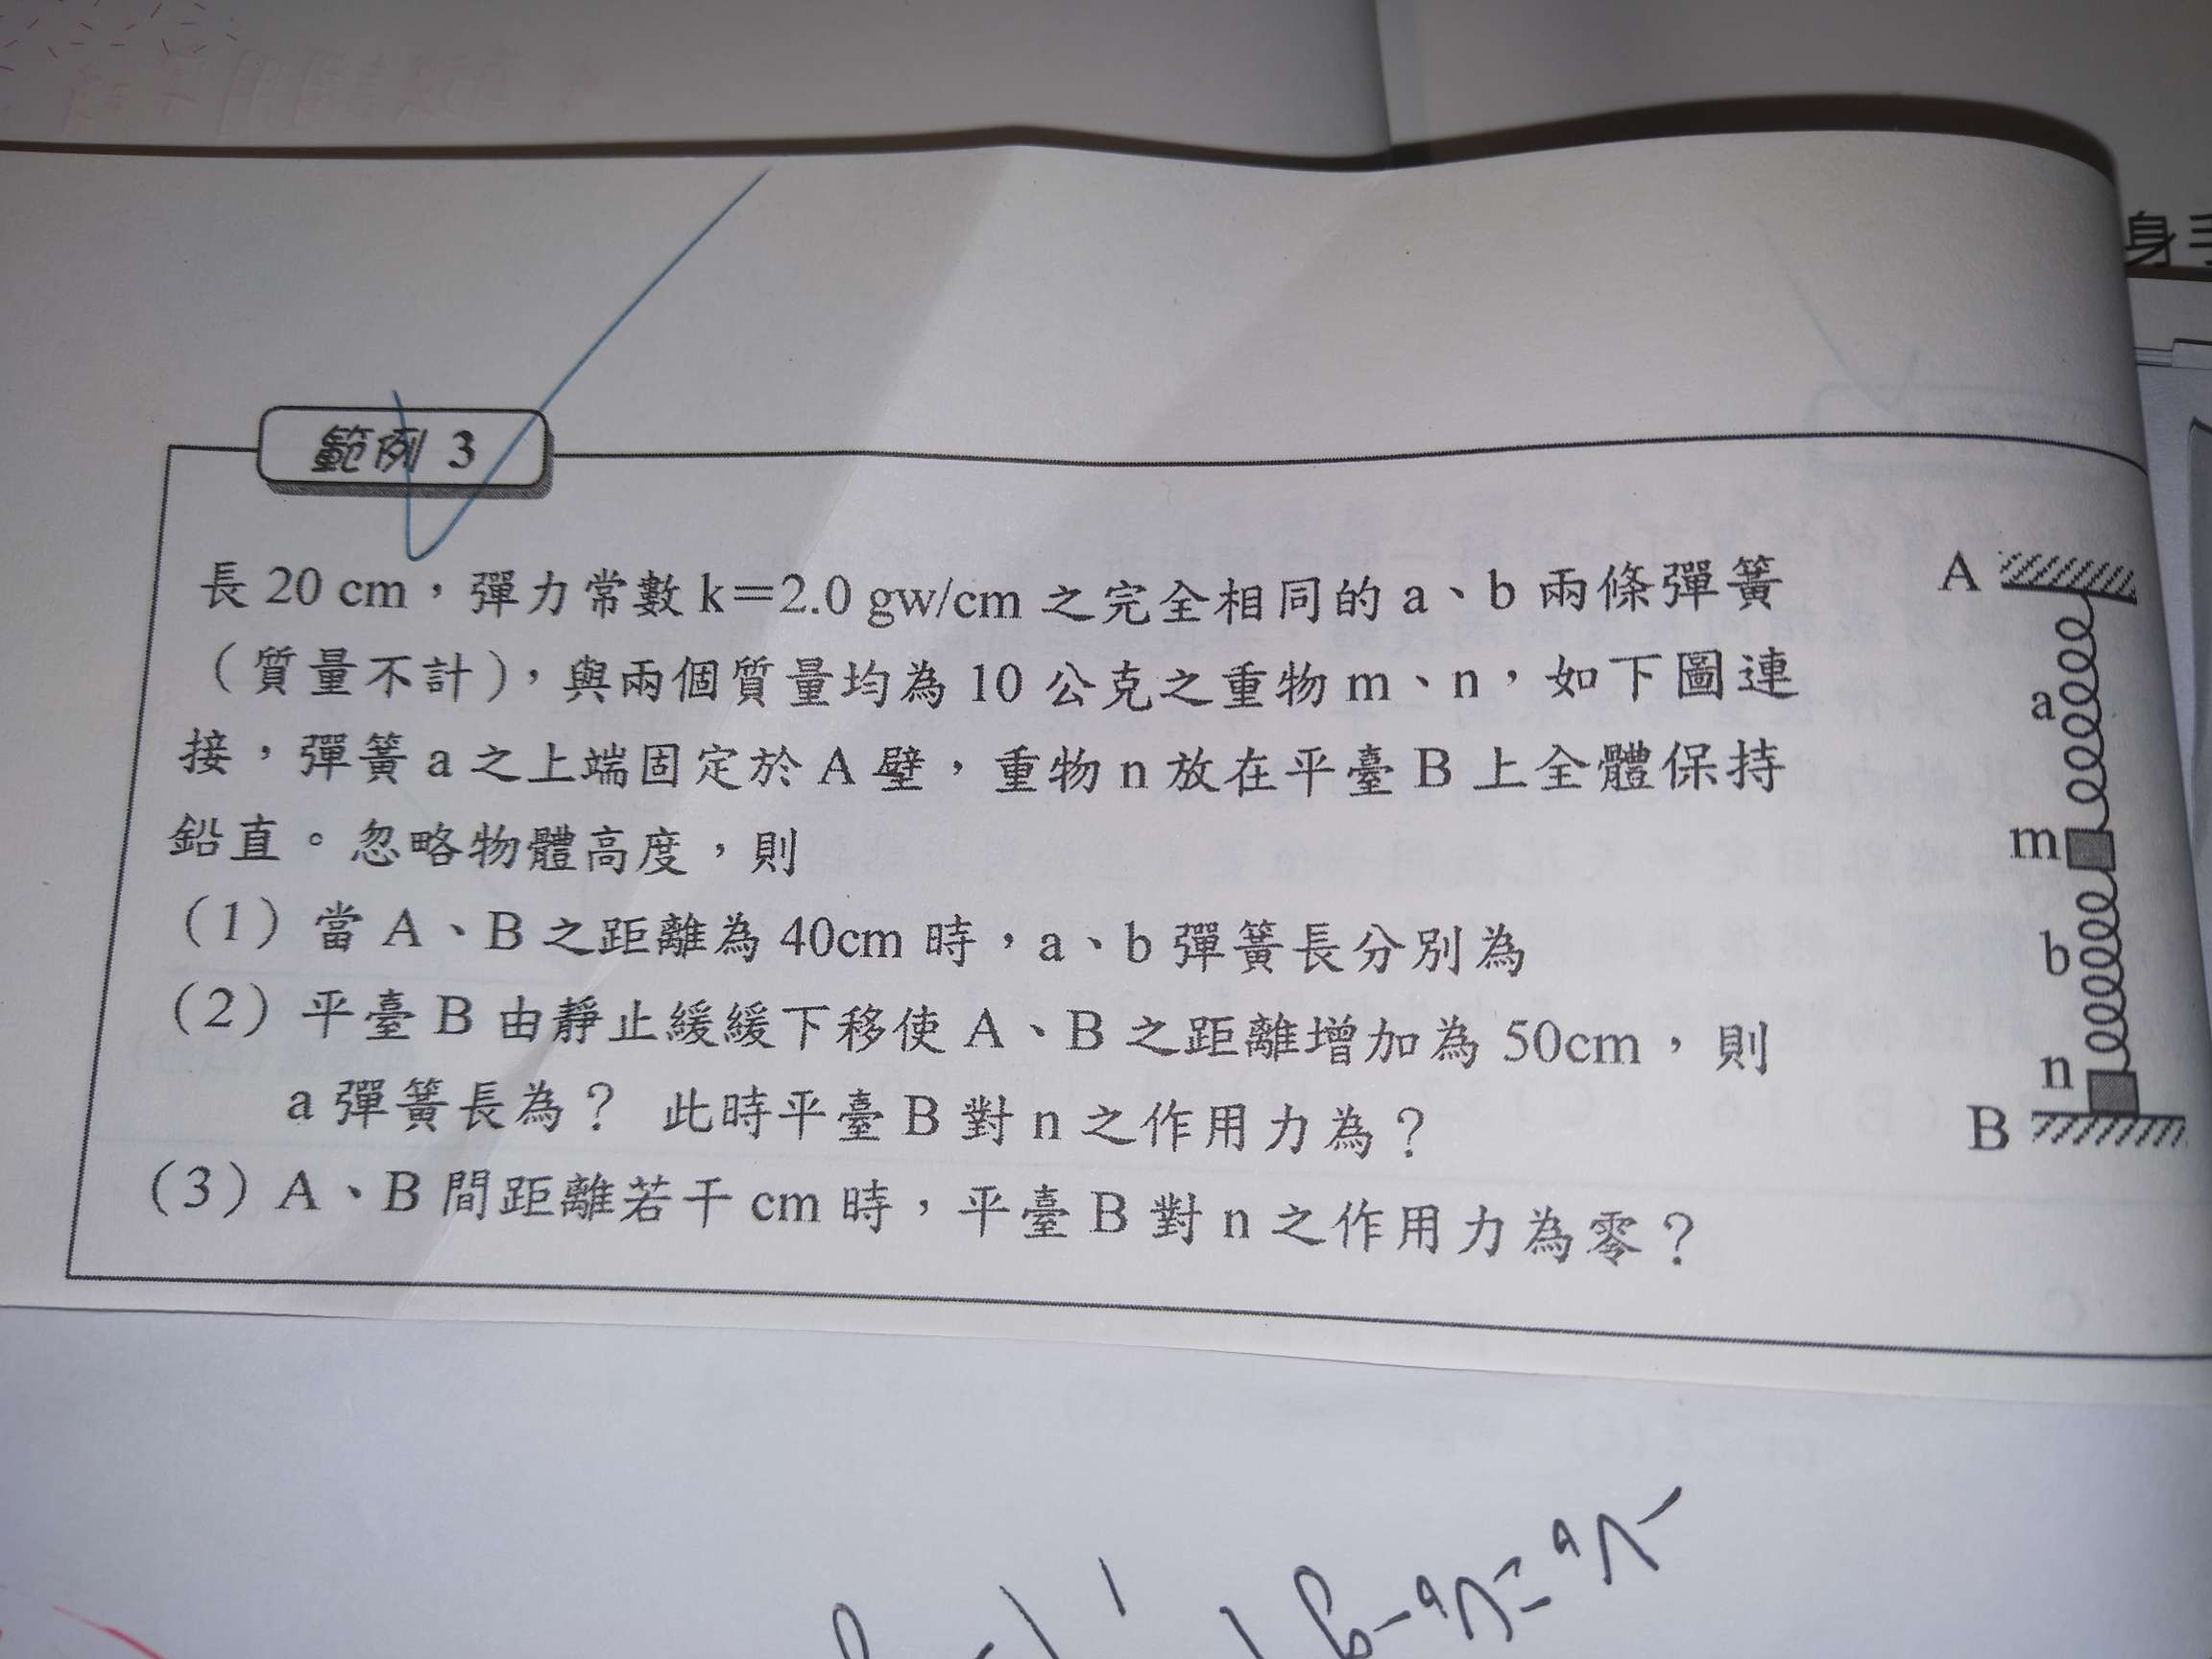 身手
範例 3
長 20 cm，彈力常數 k＝2.0 gw/cm 之完全相同的 a、b 兩條彈簧
（質量不計），與兩個質量均為 10 公克之重物 m、n，如下圖連
接，彈簧 a 之上端固定於 A 壁，重物 n 放在平臺 B 上全體保持
鉛直。忽略物體高度，則
（1）當 A、B 之距離為 40cm 時，a、b 彈簧長分別為
（2）平臺 B 由靜止緩緩下移使 A、B 之距離增加為 50cm，則
a 彈簧長為？ 此時平臺 B 對 n 之作用力為？
（3）A、B 間距離若干 cm 時，平臺 B 對 n 之作用力為零？
A
a
m
b
n
B